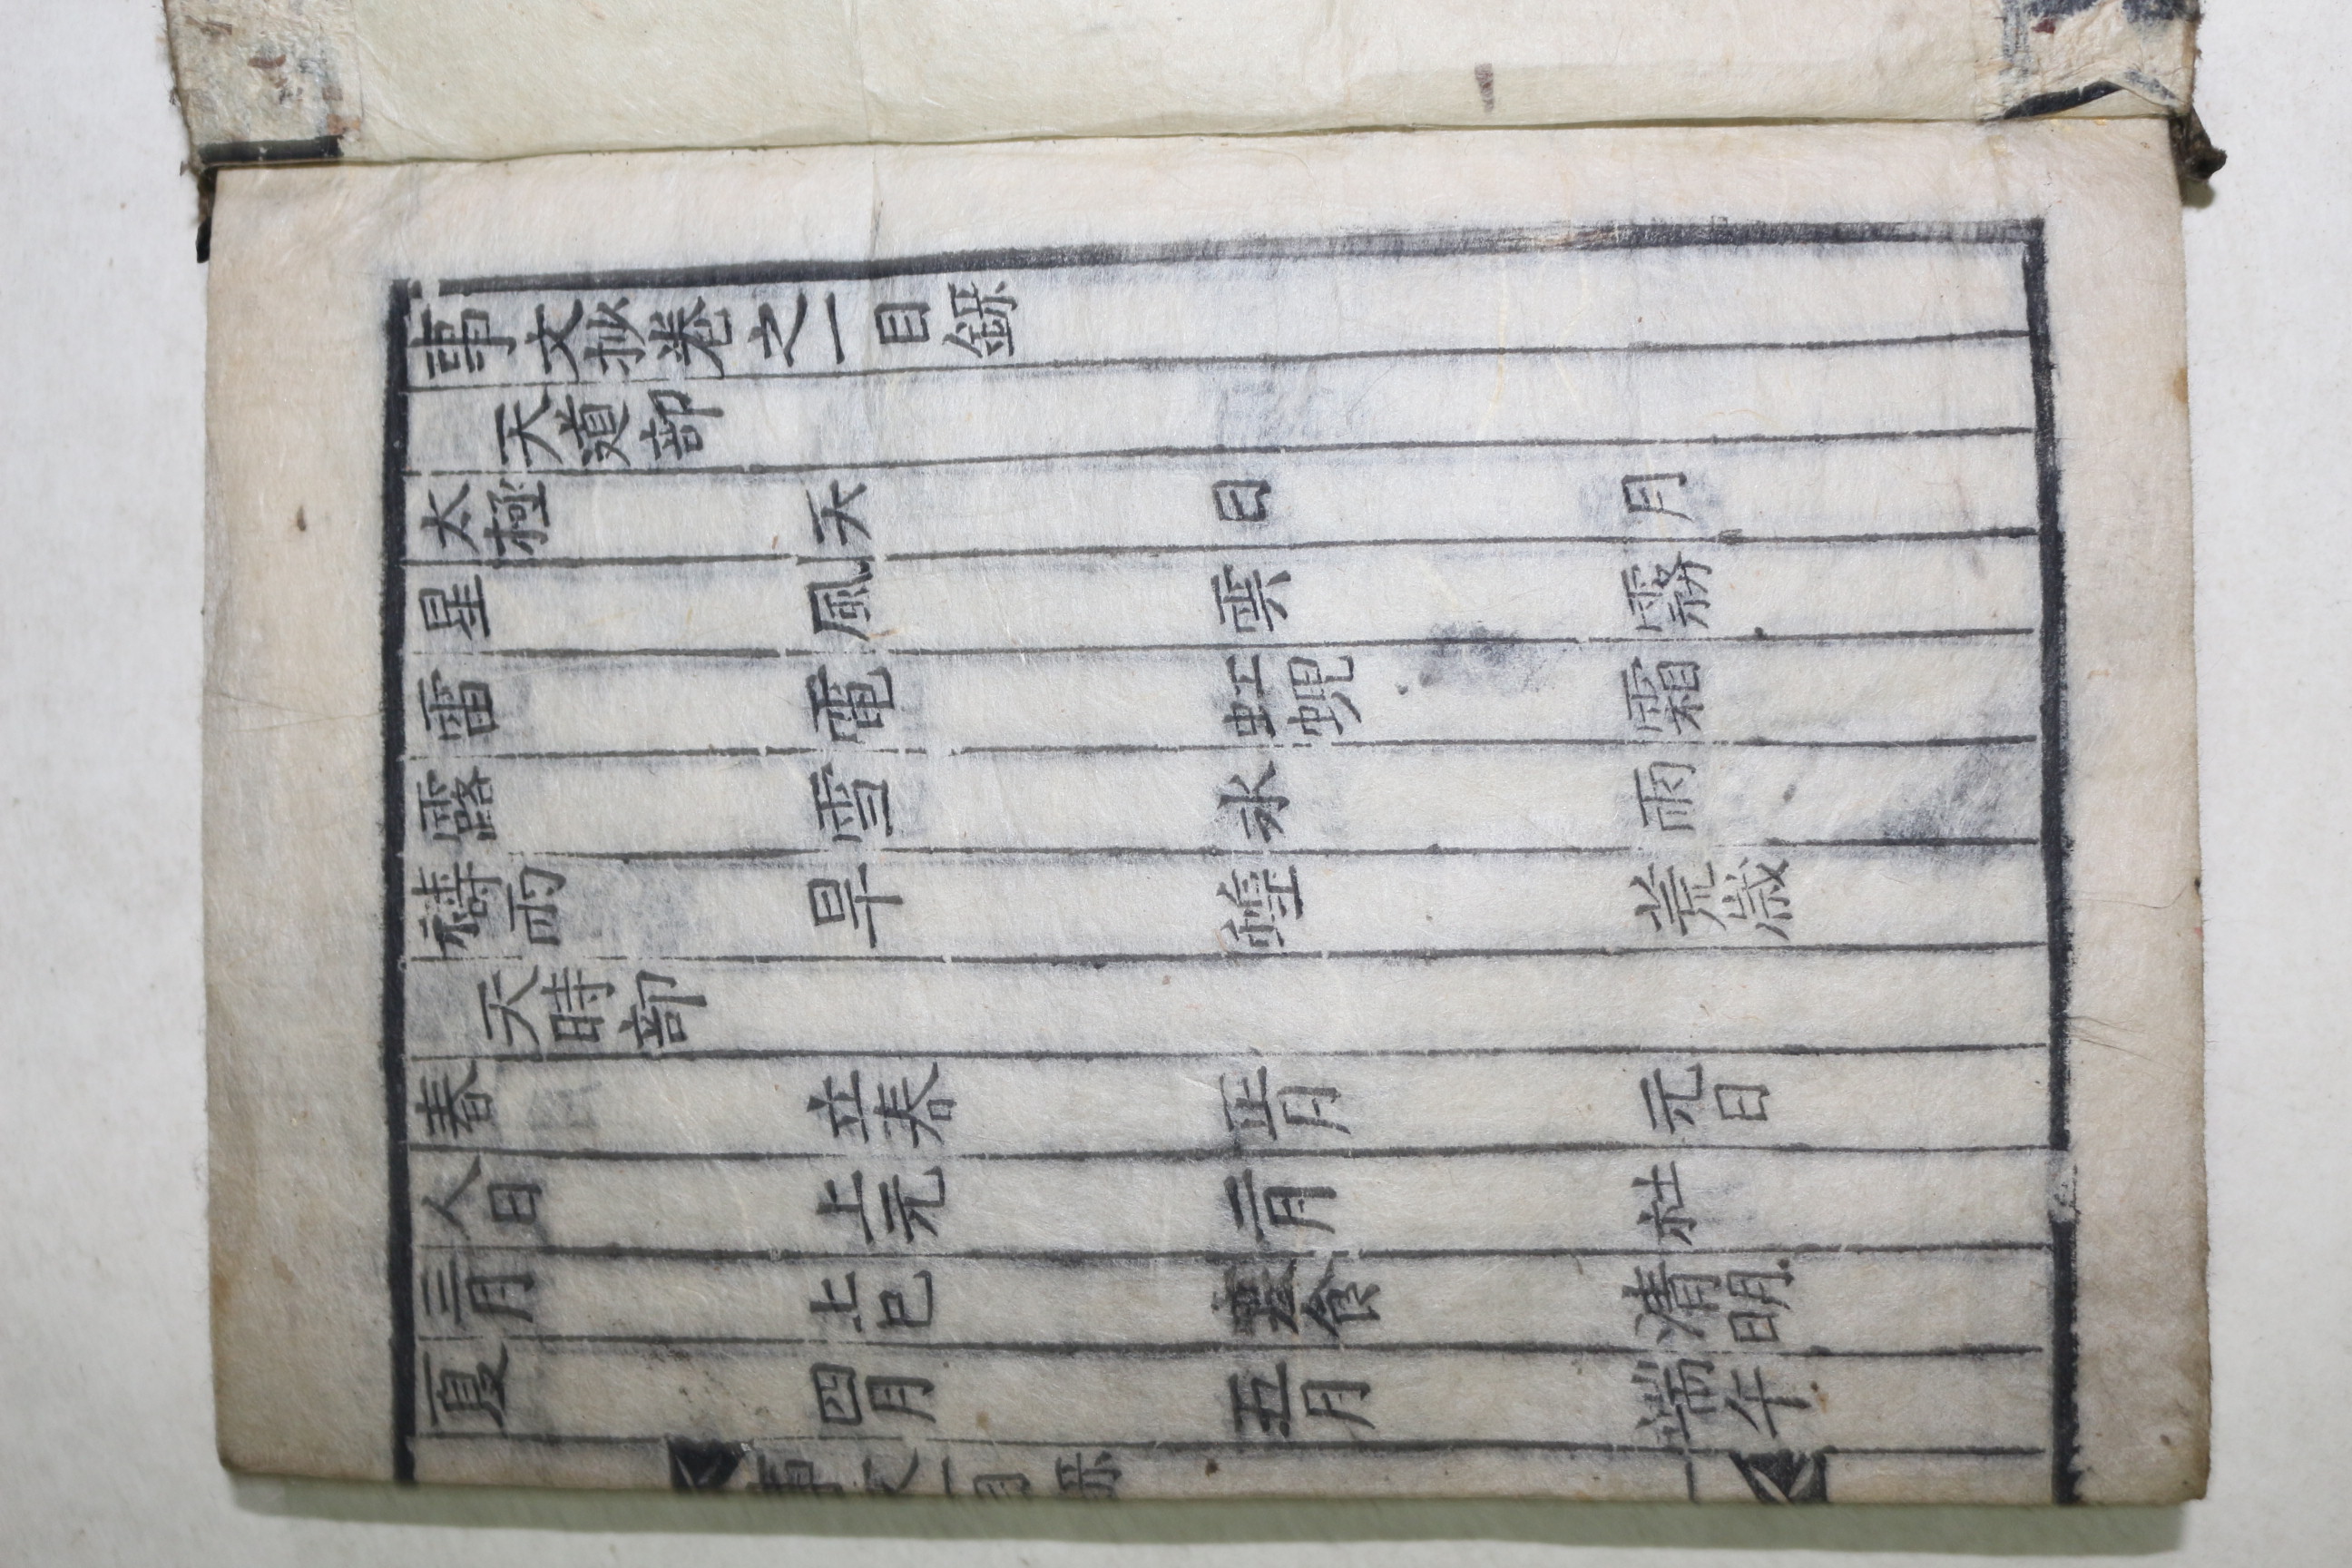 事文抄卷之一目錄
天道部
太極 天 日 月
星 風 雲 霧
雷 電 虹蜺 霜
露 雪 氷 雨
禱雨 旱 蝗 荒歲
天時部
春 立春 正月 元日
人日 上元 二月 社
三月 上巳 寒食 清明
夏 四月 五月 端午
事文一目錄 一